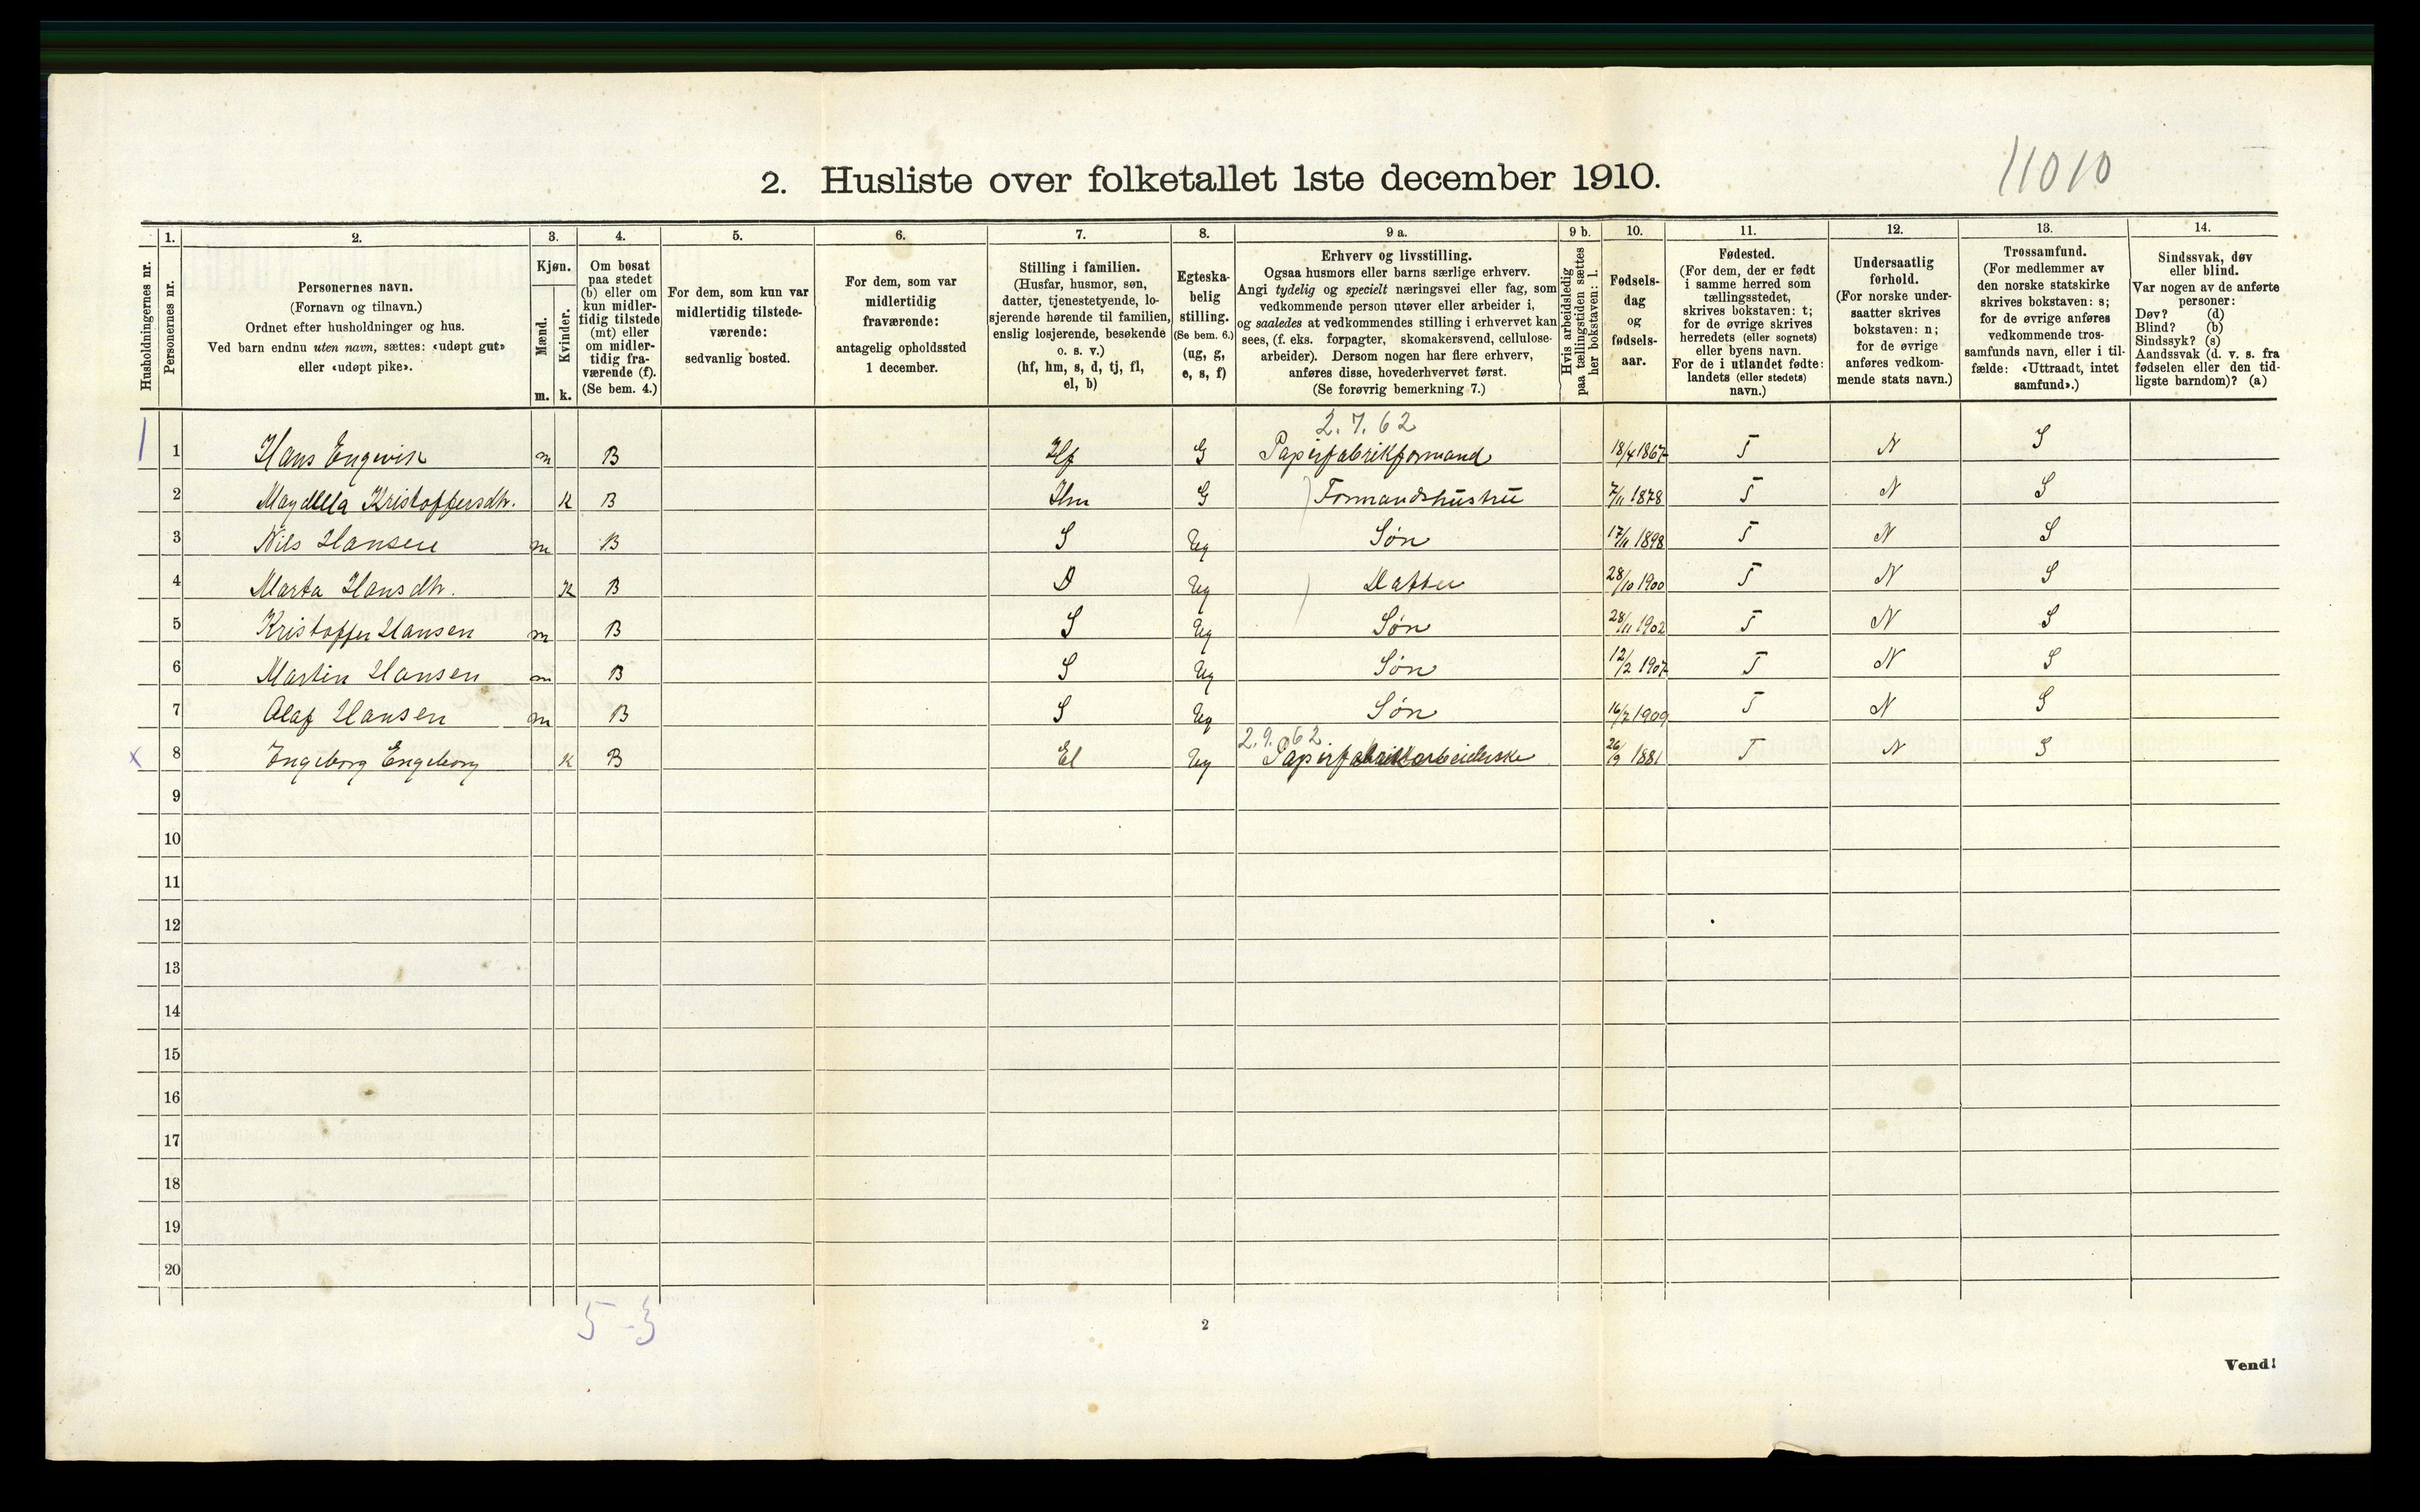 11010
2. Husliste over folketallet 1ste december 1910.
Husholdningernes nr.
1. Personernes nr.
2. Personernes navn.
(Fornavn og tilnavn.)
Ordnet efter husholdninger og hus.
Ved barn endnu uten navn, sættes: «udøpt gut»
eller «udøpt pike».
3. Kjøn.
Mænd. m.
Kvinder. k.
4. Om bosat
paa stedet
(b) eller om
kun midler-
tidig tilstede
(mt) eller
om midler-
tidig fra-
værende (f).
(Se bem. 4.)
5. For dem, som kun var
midlertidig tilstede-
værende:
sedvanlig bosted.
6. For dem, som var
midlertidig
fraværende:
antagelig opholdssted
1 december.
7. Stilling i familien.
(Husfar, husmor, søn,
datter, tjenestetyende, lo-
sjerende hørende til familien,
enslig losjerende, besøkende
o. s. v.)
(hf, hm, s, d, tj, fl,
el, b)
8. Egteska-
belig
stilling.
(Se bem. 6.)
(ug, g,
e, s, f)
9 a. Erhverv og livsstilling.
Ogsaa husmors eller barns særlige erhverv.
Angi tydelig og specielt næringsvei eller fag, som
vedkommende person utøver eller arbeider i,
og saaledes at vedkommendes stilling i erhvervet kan
sees, (f. eks. forpagter, skomakersvend, cellulose-
arbeider). Dersom nogen har flere erhverv,
anføres disse, hovederhvervet først.
(Se forøvrig bemerkning 7.)
9 b. Hvis arbeidsledig
paa tællingstiden sættes
her bokstaven: l.
10. Fødsels-
dag
og
fødsels-
aar.
11. Fødested.
(For dem, der er født
i samme herred som
tællingsstedet,
skrives bokstaven: t;
for de øvrige skrives
herredets (eller sognets)
eller byens navn.
For de i utlandet fødte:
landets (eller stedets)
navn.)
12. Undersaatlig
forhold.
(For norske under-
saatter skrives
bokstaven: n;
for de øvrige
anføres vedkom-
mende stats navn.)
13. Trossamfund.
(For medlemmer av
den norske statskirke
skrives bokstaven: s;
for de øvrige anføres
vedkommende tros-
samfunds navn, eller i til-
fælde: «Uttraadt, intet
samfund».)
14. Sindssvak, døv
eller blind.
Var nogen av de anførte
personer:
Døv? (d)
Blind? (b)
Sindssyk? (s)
Aandssvak (d. v. s. fra
fødselen eller den tid-
ligste barndom)? (a)
2.7.62
1 1 Hans Engevik m B Hf G Papirfabrikformand 18/4 1867 T N S
2 Magdella Kristoffersdtr. K B Hm G Formandshustru 7/11 1878 T N S
3 Nils Hansen m B S Ug Søn 17/11 1898 T N S
4 Marta Hansdtr. K B D Ug Datter 28/10 1900 T N S
5 Kristoffer Hansen m B S Ug Søn 28/11 1902 T N S
6 Martin Hansen m B S Ug Søn 12/2 1907 T N S
7 Olaf Hansen m B S Ug Søn 16/7 1909 T N S
2.9.62
x 8 Ingeborg Engeborg K B El Ug Papirfabrikarbeiderske 26/9 1881 T N S
9
10
11
12
13
14
15
16
17
18
19
20
5-3
2
Vend!